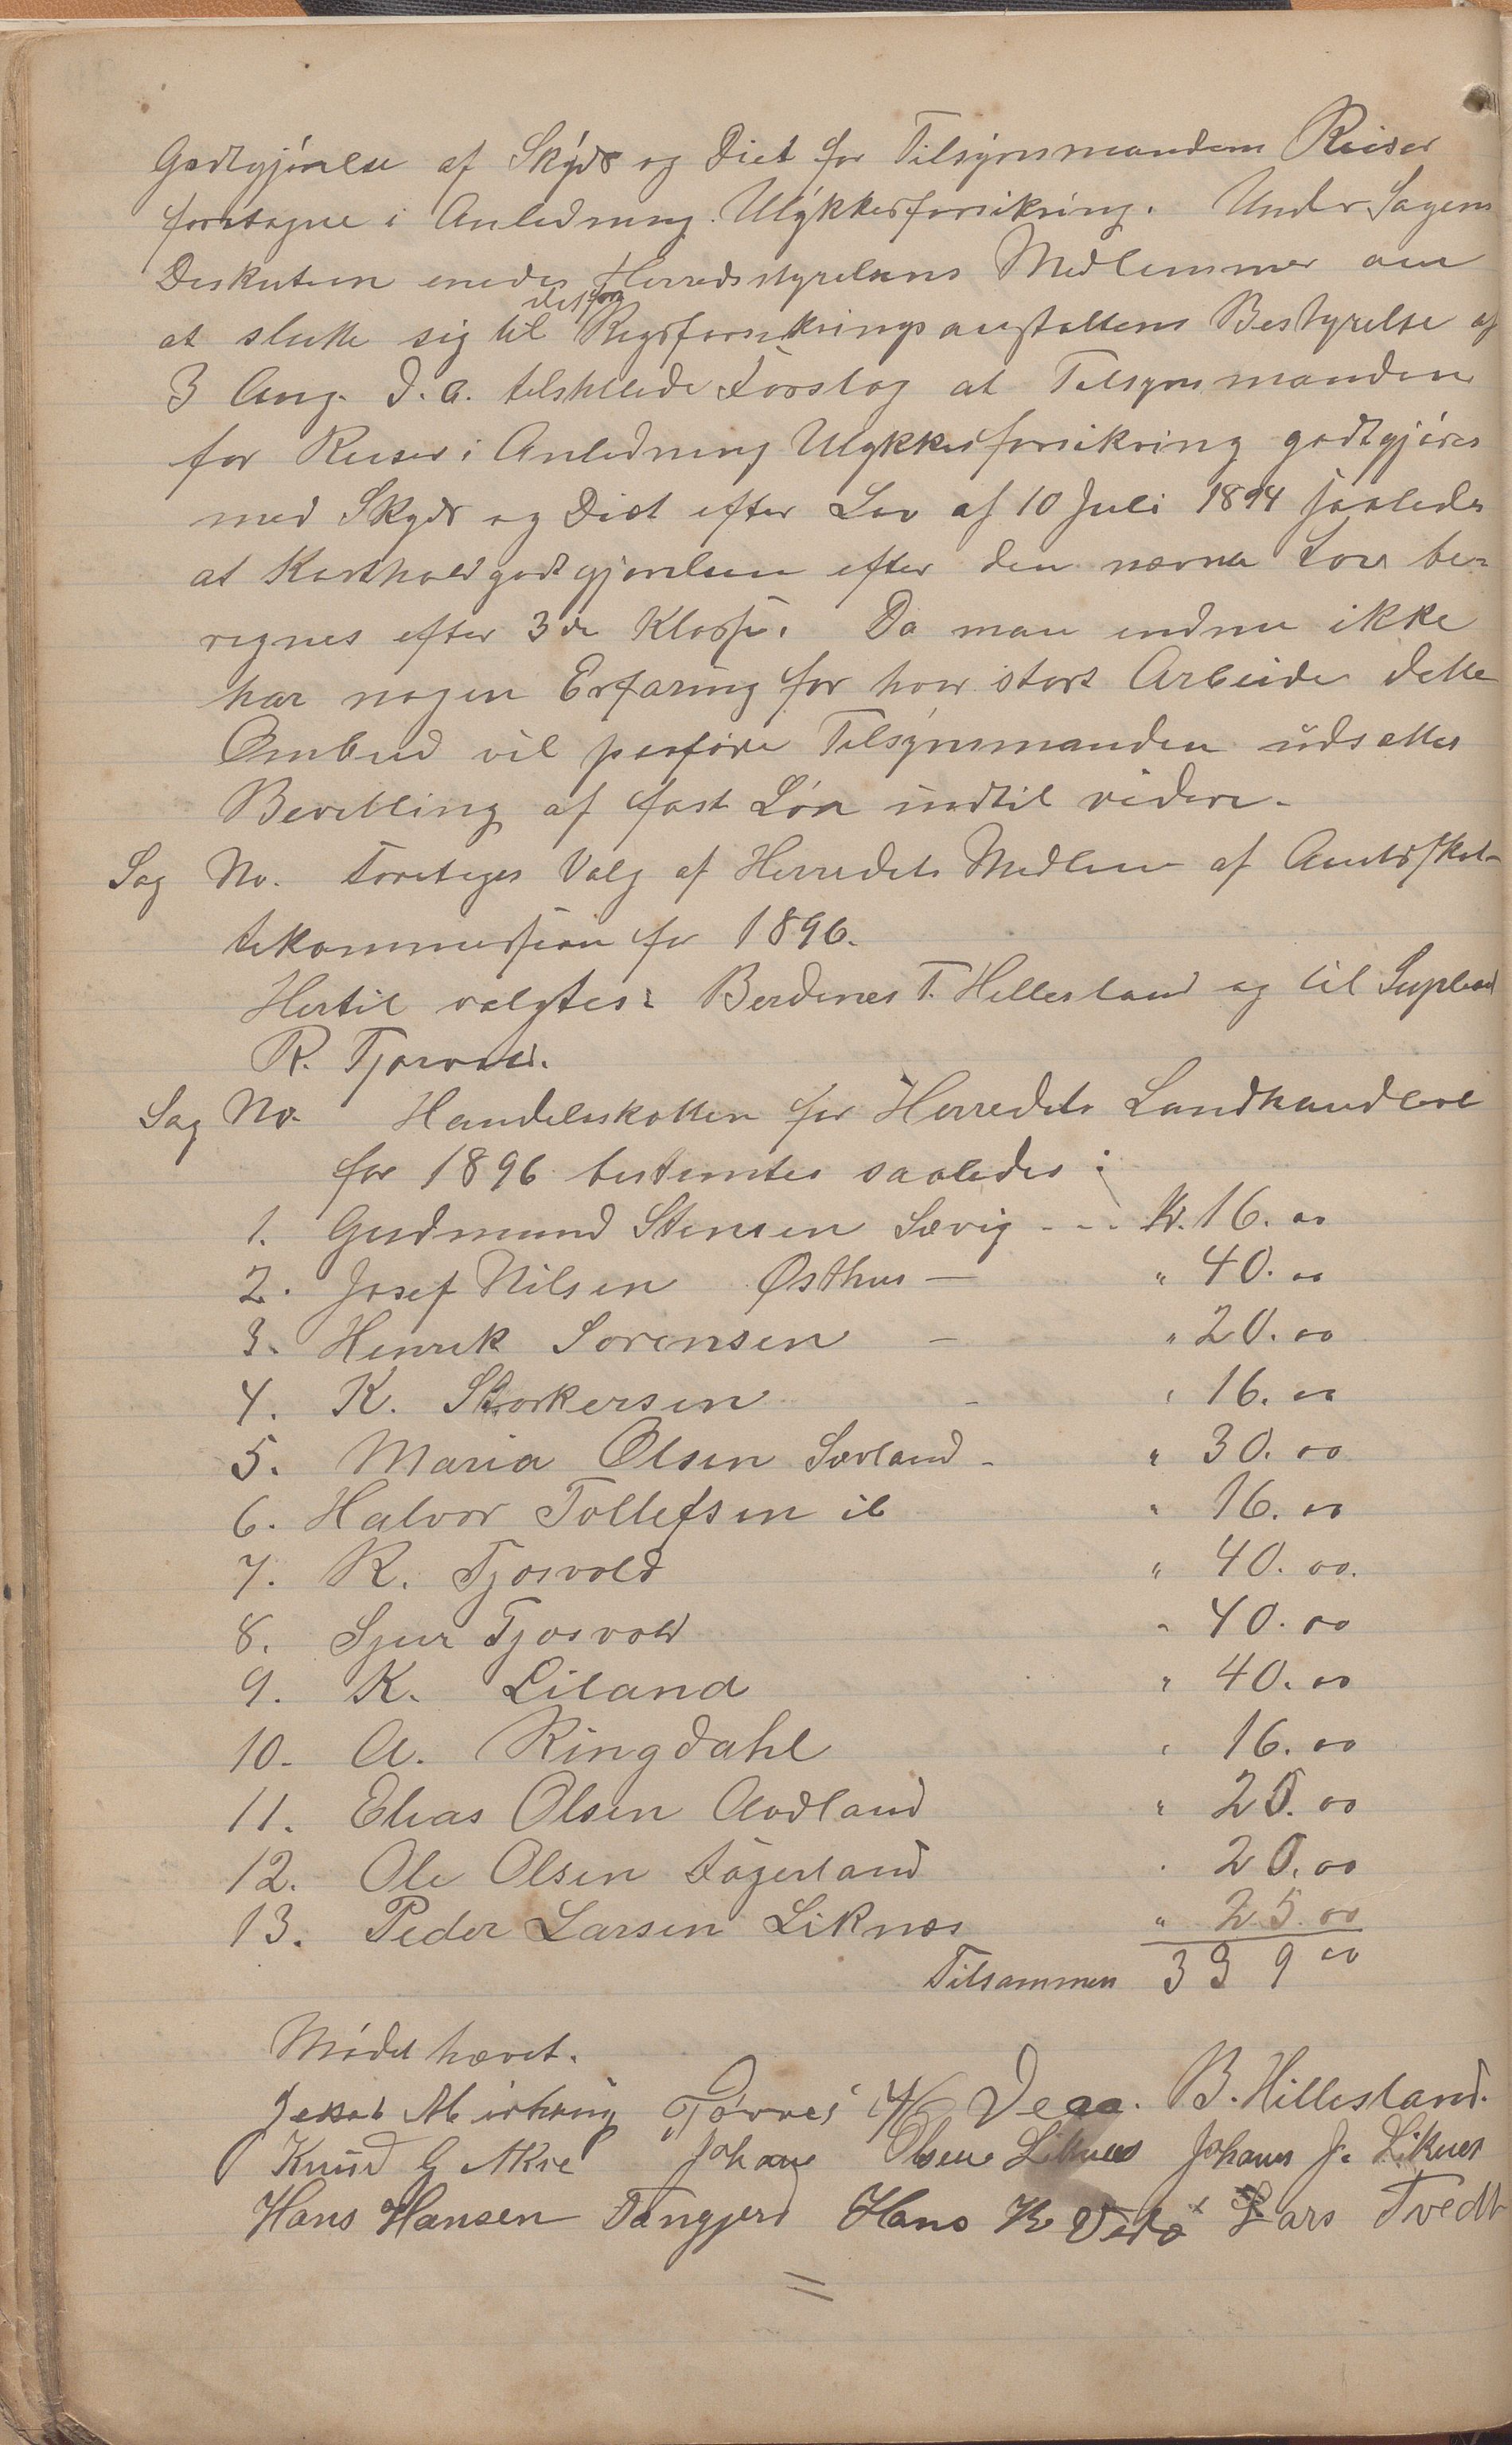 Godtgjörelse af Skýds og Diet for Tilsýnsmandens Reiser
foretagne i Anledning Ulýkkesforsikring. Under Sagens
Diskution enedes Herredsstyrelsens Medlemmer om
at slutte sig til det fra Rigsforsikringsanstaltens Bestyrelse af
3 Aug. d. a. tilstillede Forslag at Tilsynsmanden
for Reiser i Anledning Ulykkesforsikring godtgjöres
med Skyds og Diæt efter Lov af 10 Juli 1894 saaledes
at Kosthold godtgjörelsen efter den nævnte Lov be-
regnes efter 3de Klasse. Da man endnu ikke
har nogen Erfaring for hvor stort Arbeide dette
Ombud vil paaföre Tilsýnsmanden udsættes
Bevilling af fast Lön indtil videre.
Sag No. Foretages Valg af Herredets Medlem af Amtsskat-
tekommission for 1896.
Hertil valgtes: Berdines T. Hillesland og til Supleant
R. Tjosvold.
Sag No. Handelsskatten for Herredets Landhandlere
for 1896 bestemtes saaledes:
1. Gudmund Stensen Sævig - - - Kr. 16. 00
2. Josef Nilsen Østhus — " 40. 00
3. Henrik Sorensen — " 20. 00
4. K. Storkersen - " 16. 00
5. Maria Olsen Sørland - " 30. 00
6. Halvor Tollefsen ib " 16. 00
7. R. Tjosvold " 40. 00.
8. Sjur Tjosvold " 40. 00
9. K. Liland " 40. 00
10. A. Ringdahl " 16. 00
11. Elias Olsen Aadland " 20. 00
12. Ole Olsen Fagerland " 20. 00
13. Peder Larsen Liknes " 25. 00
Tilsammen 339 00
Mödet hævet.
B. Hillesland.
Knud G Akre Johan Olsen Liknes Johans J. Liknes
Hans Hansen Hans Lars Tvedt